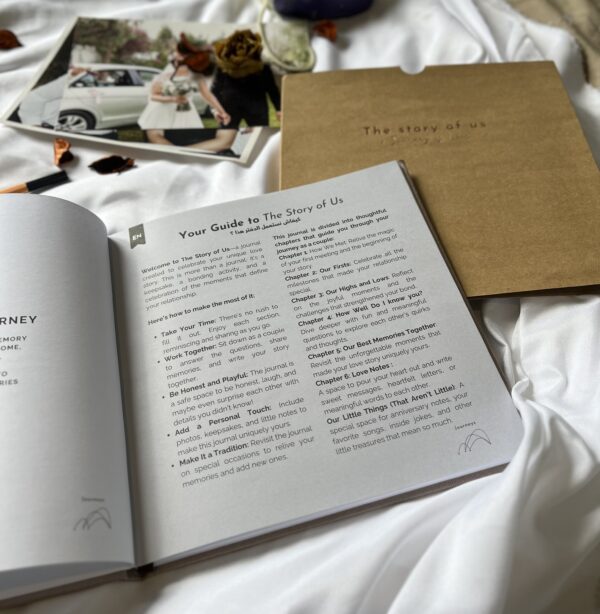 RNEY
EMORY
OME.
TO
RIES
Journeys
EN
Your Guide to The Story of Us
كيفاش نستعمل الدفتر هذا ؟
Welcome to The Story of Us—a journal
created to celebrate your unique love
story. This is more than a journal, it's a
keepsake, a bonding activity, and a
celebration of the moments that define
your relationship.
Here's how to make the most of it:
• Take Your Time: There's no rush to
fill it out. Enjoy each section,
reminiscing and sharing as you go
• Work Together: Sit down as a couple
to answer the questions, share
memories, and write your story
together.
• Be Honest and Playful: The journal is
a safe space to be honest, laugh, and
maybe even surprise each other with
details you didn't know!
• Add a Personal Touch: Include
photos, keepsakes, and little notes to
make this journal uniquely yours.
• Make It a Tradition: Revisit the journal
on special occasions to relive your
memories and add new ones.
This journal is divided into thoughtful
chapters that guide you through your
journey as a couple:
Chapter 1: How We Met: Relive the magic
of your first meeting and the beginning of
your story.
Chapter 2: Our Firsts: Celebrate all the
milestones that made your relationship
special.
Chapter 3: Our Highs and Lows: Reflect
on the joyful moments and the
challenges that strengthened your bond.
Chapter 4: How Well Do I Know you?
Deep diver with fun and meaningful
questions to explore each other's quirks
and thoughts.
Chapter 5: Our Best Memories Together:
Revisit the unforgettable moments that
made your love story uniquely yours.
Chapter 6: Love Notes :
A space to pour your heart out and write
sweet messages, heartfelt letters, or
meaningful words to each other.
Our Little Things (That Aren't Little): A
special space for anniversary notes, your
favorite songs, inside jokes, and other
little treasures that mean so much.
Journeys
The story of us